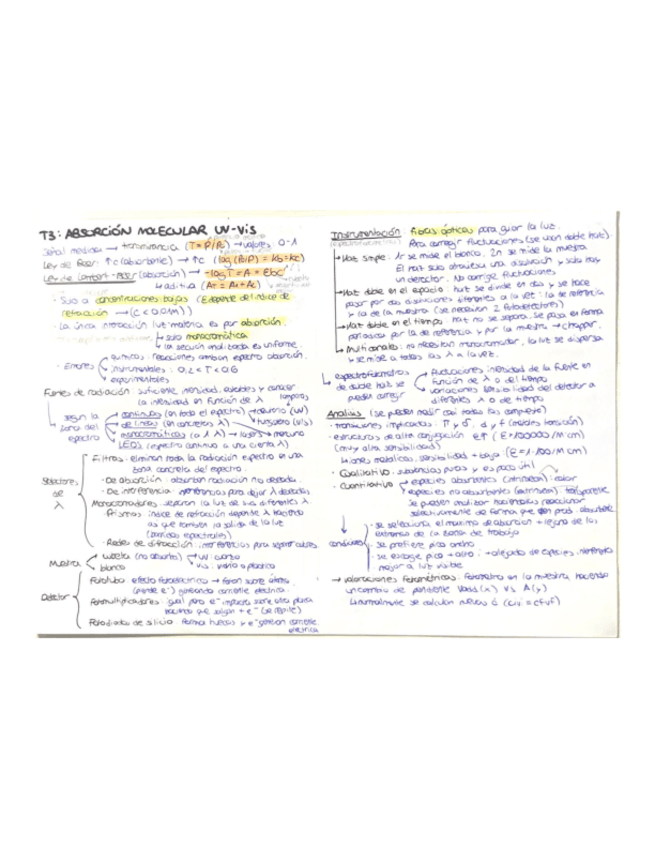 T3: ABSORCIÓN MOLECULAR UV-Vis
Señal medida → transmitancia (T = P/P₀) → valores 0-1
Ley de Beer: ↑c (absorbente) → ↑c (log(P₀/P) = Kb = Kc)
Ley de Lambert-Beer (absorción) → -log T = A = Ebc
↳ aditiva (AT = A₁ + A₂)
· Solo a concentraciones bajas (E depende del índice de
refracción → (C < 0.01M))
· La única interacción luz-materia es por absorción.
↳ solo monocromática
↳ la sección analizada es uniforme.
· Errores químicos: reacciones cambian espectro absorción.
instrumentales: 0,2 < T < 0,6
experimentales
Fuentes de radiación: suficiente intensidad, estables y conocer
la intensidad en función de λ
↳ según la zona del espectro
continuas (en todo el espectro) → deuterio (UV)
→ tungsteno (VIS)
de líneas (en concretas λ)
monocromáticas (a 1 λ) → láser → mercurio
LEDS (espectro continuo a una cierta λ)
Selectores de λ
Filtros: eliminan toda la radiación espectro en una
zona concreta del espectro.
· De absorción: absorben radiación no deseada.
· De interferencia: interferencias para dejar λ deseadas
Monocromadores: separan la luz de las diferentes λ.
· Prismas: índice de refracción depende λ haciendo
así que cambien la salida de la luz
(bandas espectrales)
· Redes de difracción: interferencias para separar haces.
Muestra cubeta (no absorba) → UV: cuarzo
vis: vidrio o plástico
blanco
Detector
Fototubo: efecto fotoeléctrico → fotón sobre cátodo
(pierde e⁻) generando corriente eléctrica.
Fotomultiplicadores: igual pero e⁻ impacta sobre otra placa
haciendo que salgan + e⁻ (se repite)
Fotodiodos de silicio: forma huecos y e⁻ generan corriente
eléctrica
Instrumentación: fibras ópticas para guiar la luz.
(espectrofotómetro) Para corregir fluctuaciones (se usan doble haz).
→ Haz simple: 1º se mide el blanco, 2º se mide la muestra
El haz solo atraviesa una disolución y solo hay
un detector. No corrige fluctuaciones
→ Haz doble en el espacio: haz se divide en dos y se hace
pasar por dos disoluciones diferentes a la vez: la de referencia
y la de la muestra (se necesitan 2 fotodetectores)
→ Haz doble en el tiempo: haz no se separa. Se pasa en forma
periódica por la de referencia y por la muestra → chopper.
↳ Multicanales: no necesitan monocromador, la luz se dispersa
y se mide a todas las λ a la vez.
↳ espectrofotómetros de doble haz se pueden corregir
fluctuaciones intensidad de la fuente en
función de λ o del tiempo
variaciones sensibilidad del detector a
diferentes λ o de tiempo
Análisis: (se pueden medir casi todos los compuestos)
· transiciones implicadas: π y σ, d y f (metales transición)
· estructuras de alta conjugación E↑ (E≈100000/M cm)
(muy alta sensibilidad)
↳ iones metálicos, sensibilidad + baja (E≈1-100/M cm)
· Cualitativo: sustancias puras y es poco útil
· Cuantitativo → especies absorbentes (intrínseca): color
especies no absorbentes (extrínseca): transparente
se pueden analizar haciéndolas reaccionar
selectivamente de forma que den prod. absorbente
condiciones
· se selecciona el máximo de absorción + lejano de los
extremos de la zona de trabajo
· se prefiere pico ancho
· se escoge pico + alto: + alejado de especies interfer.
mejor a luz visible
→ valoraciones fotométricas: fotómetro en la muestra, haciendo
un cambio de pendiente Vadd (x) vs A (y)
↳ normalmente se calculan nuevas c (civi = cfvf)